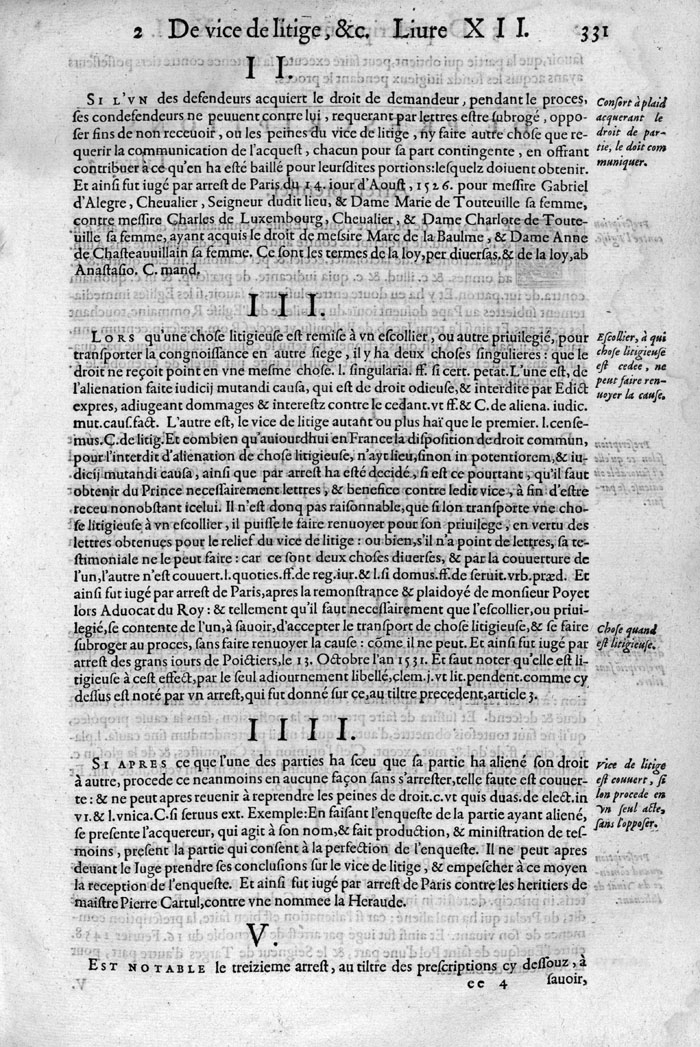 2 De vice de litige, &c. Liure XII. 331
II.
SI L'VN des defendeurs acquiert le droit de demandeur, pendant le proces,
ses condefendeurs ne peuuent contre lui, requerant par lettres estre subrogé, oppo-
ser fins de non receuoir, ou les peines du vice de litige, ny faire autre chose que re-
querir la communication de l'acquest, chacun pour sa part contingente, en offrant
contribuer à ce qu'en ha esté baillé pour leursdites portions: lesquelz doiuent obtenir.
Et ainsi fut iugé par arrest de Paris du 14. iour d'Aoust, 1526. pour messire Gabriel
d'Alegre, Cheualier, Seigneur dudit lieu, & Dame Marie de Touteuille sa femme,
contre messire Charles de Luxembourg, Cheualier, & Dame Charlote de Toute-
uille sa femme, ayant acquis le droit de messire Marc de la Baulme, & Dame Anne
de Chasteauuillain sa femme. Ce sont les termes de la loy, per diuersas. & de la loy, ab
Anastasio. C. mand.
Consort à plaid
acquerant le
droit de par-
tie, le doit com
muniquer.
III.
LORS qu'une chose litigieuse est remise à vn escollier, ou autre priuilegié, pour
transporter la congnoissance en autre siege, il y ha deux choses singulieres: que le
droit ne reçoit point en vne mesme chose. l. singularia. ff. si cert. petat. L'une est, de
l'alienation faite iudicij mutandi causa, qui est de droit odieuse, & interdite par Edict
expres, adiugeant dommages & interestz contre le cedant. vt ff. & C. de aliena. iudic.
mut. caus. fact. L'autre est, le vice de litige autant ou plus haï que le premier. l. cense-
mus. C. de litig. Et combien qu'auiourdhui en France la disposition de droit commun,
pour l'interdit d'alienation de chose litigieuse, n'ayt lieu, sinon in potentiorem, & iu-
dicij mutandi causa, ainsi que par arrest ha esté decidé, si est ce pourtant, qu'il faut
obtenir du Prince necessairement lettres, & benefice contre ledit vice, à fin d'estre
receu nonobstant icelui. Il n'est donq pas raisonnable, que si lon transporte vne cho-
se litigieuse à vn escollier, il puisse le faire renuoyer pour son priuilege, en vertu des
lettres obtenues pour le relief du vice de litige: ou bien, s'il n'a point de lettres, sa te-
stimoniale ne le peut faire: car ce sont deux choses diuerses, & par la couuerture de
l'un, l'autre n'est couuert. l. quoties. ff. de reg. iur. & l. si domus. ff. de seruit. vrb. præd. Et
ainsi fut iugé par arrest de Paris, apres la remonstrance & plaidoyé de monsieur Poyet
lors Aduocat du Roy: & tellement qu'il faut necessairement que l'escollier, ou priui-
legié, se contente de l'un, à sauoir, d'accepter le transport de chose litigieuse, & se faire
subroger au proces, sans faire renuoyer la cause: cõme il ne peut. Et ainsi fut iugé par
arrest des grans iours de Poictiers, le 13. Octobre l'an 1531. Et faut noter qu'elle est li-
tigieuse à cest effect, par le seul adiournement libellé, clem. j. vt lit. pendent. comme cy
dessus est noté par vn arrest, qui fut donné sur ce, au tiltre precedent, article 3.
Escollier, à qui
chose litigieuse
est cedee, ne
peut faire ren-
uoyer la cause.
Chose quand
est litigieuse.
IIII.
SI APRES ce que l'une des parties ha sceu que sa partie ha aliené son droit
à autre, procede ce neanmoins en aucune façon sans s'arrester, telle faute est couuer-
te: & ne peut apres reuenir à reprendre les peines de droit. c. vt quis duas. de elect. in
vi. & l. vnica. C. si seruus ext. Exemple: En faisant l'enqueste de la partie ayant aliené,
se presente l'acquereur, qui agit à son nom, & fait production, & ministration de tes-
moins, present la partie qui consent à la perfection de l'enqueste. Il ne peut apres
deuant le Iuge prendre ses conclusions sur le vice de litige, & empescher à ce moyen
la reception de l'enqueste. Et ainsi fut iugé par arrest de Paris contre les heritiers de
maistre Pierre Cartul, contre vne nommee la Heraude.
Vice de litige
est couuert, si
lon procede en
vn seul acte,
sans l'opposer.
V.
EST NOTABLE le treizieme arrest, au tiltre des prescriptions cy dessouz, à
cc 4 sauoir,